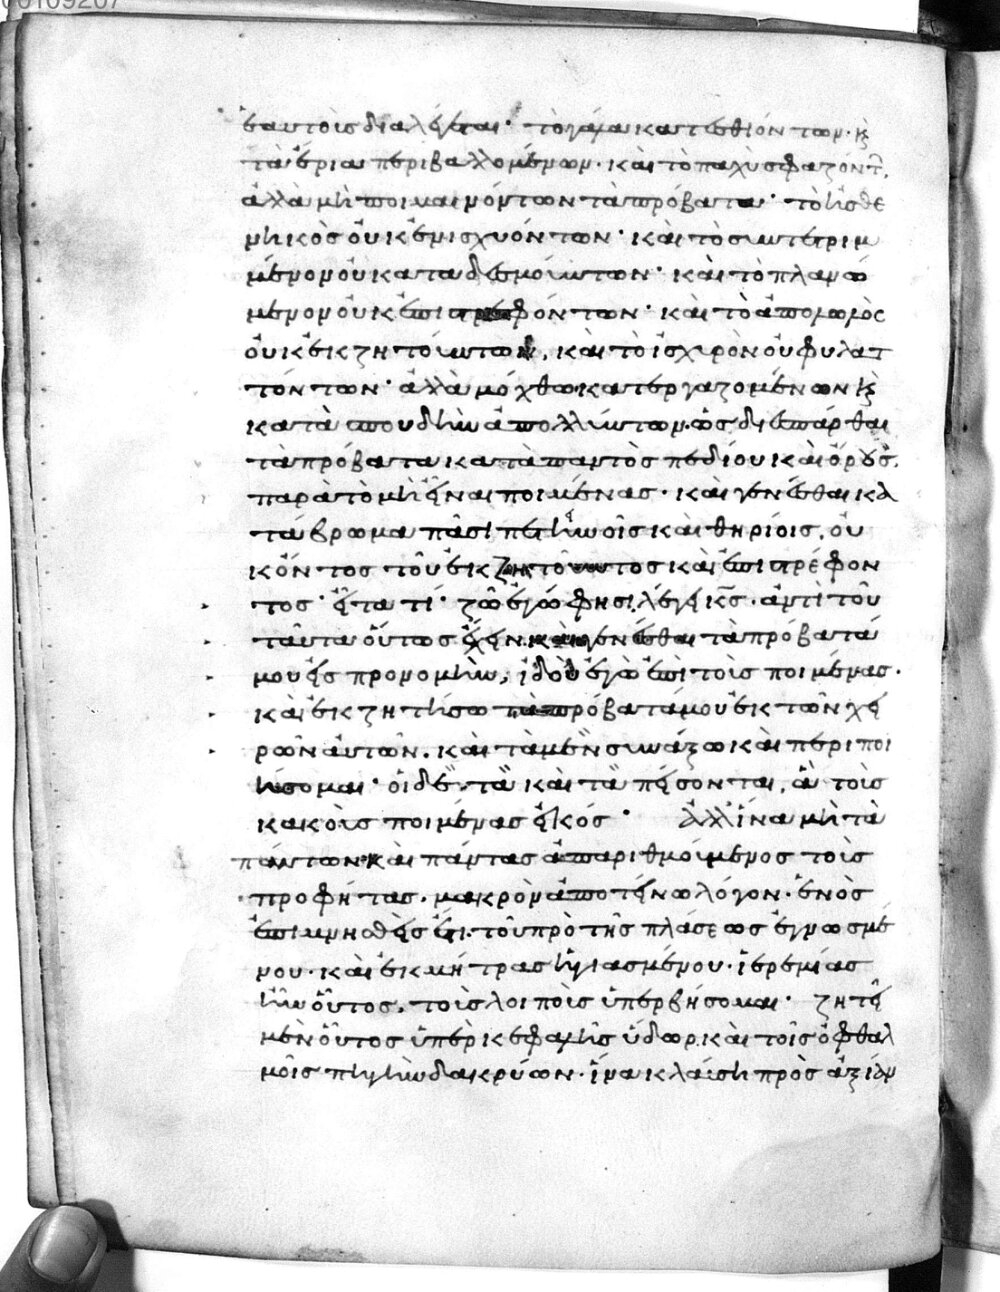 ἑαυτοῖς διαλέγεται· τὸ γάλα κατεσθιόντων· κ(αὶ)
τὰ ἔρια περιβαλλομένων· καὶ τὸ παχὺ σφαζόντ(ων),
ἀλλὰ μὴ ποιμαινόντων τὰ πρόβατα· τὸ ἠσθε
νηκὸς οὐκ ἐνισχυόντων· καὶ τὸ συντετριμ
μένον οὐ καταδεσμούντων· καὶ τὸ πλανώ
μενον οὐκ ἐπιστρεφόντων· καὶ τὸ ἀπολωλὸς
οὐκ ἐκζητούντων, καὶ τὸ ἰσχυρὸν οὐ φυλατ
τόντων· ἀλλὰ μόχθω κατεργαζομένων κ(αὶ)
κατὰ σπουδὴν ἀπολλύντων. ὡς διεσπάρθαι
τὰ πρόβατα κατὰ παντὸς πεδίου καὶ ὄρους,
παρὰ τὸ μὴ εἶναι ποιμένας· καὶ γενέσθαι κα
τάβρωμα πᾶσι πετεινοῖς καὶ θηρίοις, οὐ
κ ὄντος τοῦ ἐκζητοῦντος καὶ ἐπιστρέφον
τος· εἶτα τί· ζῶ ἐγώ φησι, λέγει κ(ύριο)ς· ἀντὶ τοῦ
ταῦτα οὕτως ἔχειν. καὶ γενέσθαι τὰ πρόβατά
μου εἰς προνομὴν, ἰδοὺ ἐγὼ ἐπὶ τοὺς ποιμένας·
καὶ ἐκζητήσω τὰ πρόβατά μου ἐκ τῶν χει
ρῶν αὐτῶν. καὶ τὰ μὲν συνάξω καὶ περιποι
ήσομαι· οἱ δὲ τὰ καὶ τὰ πείσονται, ἃ τοὺς
κακοὺς ποιμένας εἰκός· Ἀλλ' ἵνα μὴ τὰ
πάντων καὶ πάντας ἀπαριθμούμενος τοὺς
προφήτας. μακρὸν ἀποτείνω λόγον. ἑνὸς
ἐπιμνησθεὶς ἔτι. τοῦ πρὸ τῆς πλάσεως ἐγνωσμέ
νου. καὶ ἐκ μήτρας ἡγιασμένου. ἱερεμίας
ἦν οὗτος. τοὺς λοιποὺς ὑπερβήσομαι· ζητεῖ
μὲν οὗτος ὑπὲρ κεφαλῆς ὕδωρ. καὶ τοῖς ὀφθαλ
μοῖς πηγὴν δακρύων. ἵνα κλαύσῃ πρὸς ἀξίαν